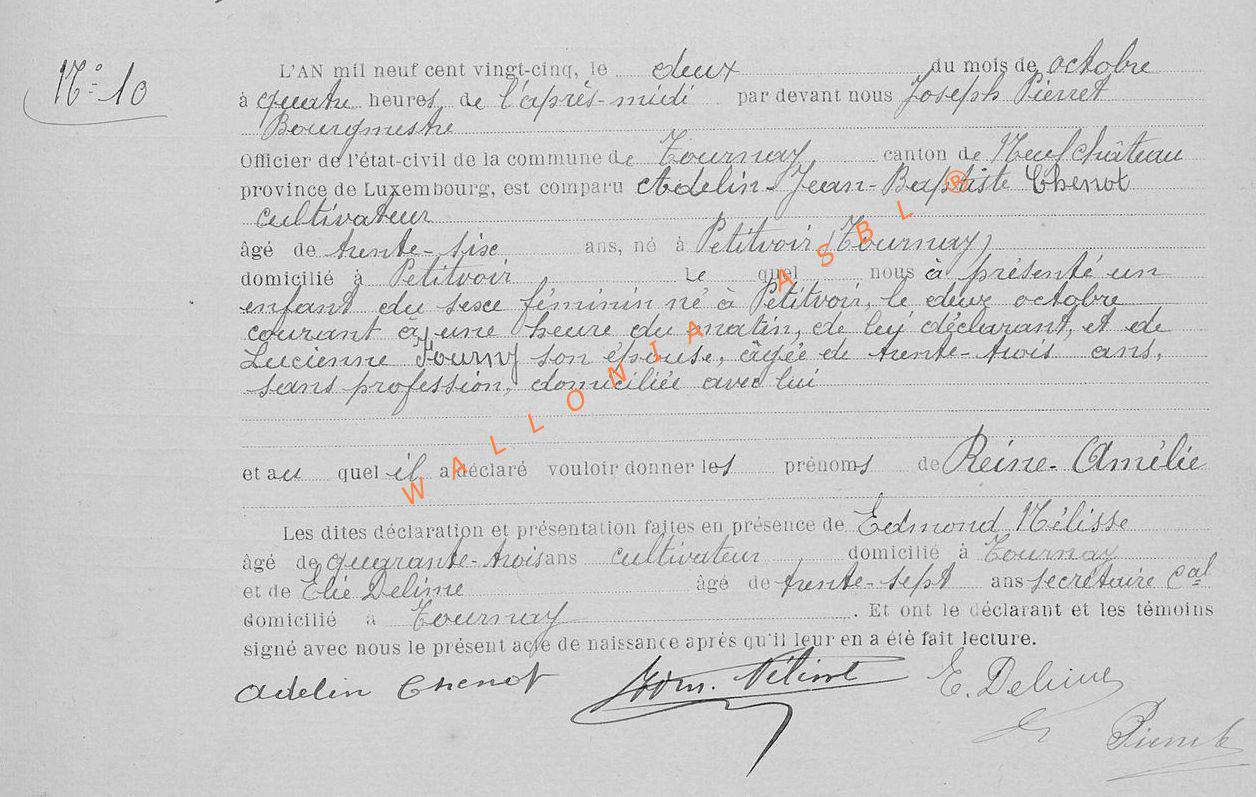 N° 10
L'AN mil neuf cent vingt-cinq, le deux du mois de octobre
à quatre heures, de l'après-midi par devant nous Joseph Pierret
Bourgmestre
Officier de l'état-civil de la commune de Tournay canton de Neufchâteau
province de Luxembourg, est comparu Adelin-Jean-Baptiste Chenot
cultivateur
âgé de trente-six ans, né à Petitvoir, (Tournay)
domicilié à Petitvoir le quel nous à présenté un
enfant du sexe féminin né à Petitvoir, le deux octobre
courant à une heure du matin, de lui déclarant, et de
Lucienne Fourny son épouse, âgée de trente-trois ans,
sans profession, domiciliée avec lui
et au quel il a déclaré vouloir donner les prénoms de Reine-Amélie
Les dites déclaration et présentation faites en présence de Edmond Nélisse
âgé de quarante-trois ans cultivateur domicilié à Tournay
et de Elie Delime âgé de trente-sept ans secrétaire Cal
domicilié à Tournay. Et ont le déclarant et les témoins
signé avec nous le présent acte de naissance après qu'il leur en a été fait lecture.
Adelin Chenot
E. Delime
WALLONIA ASBL ®